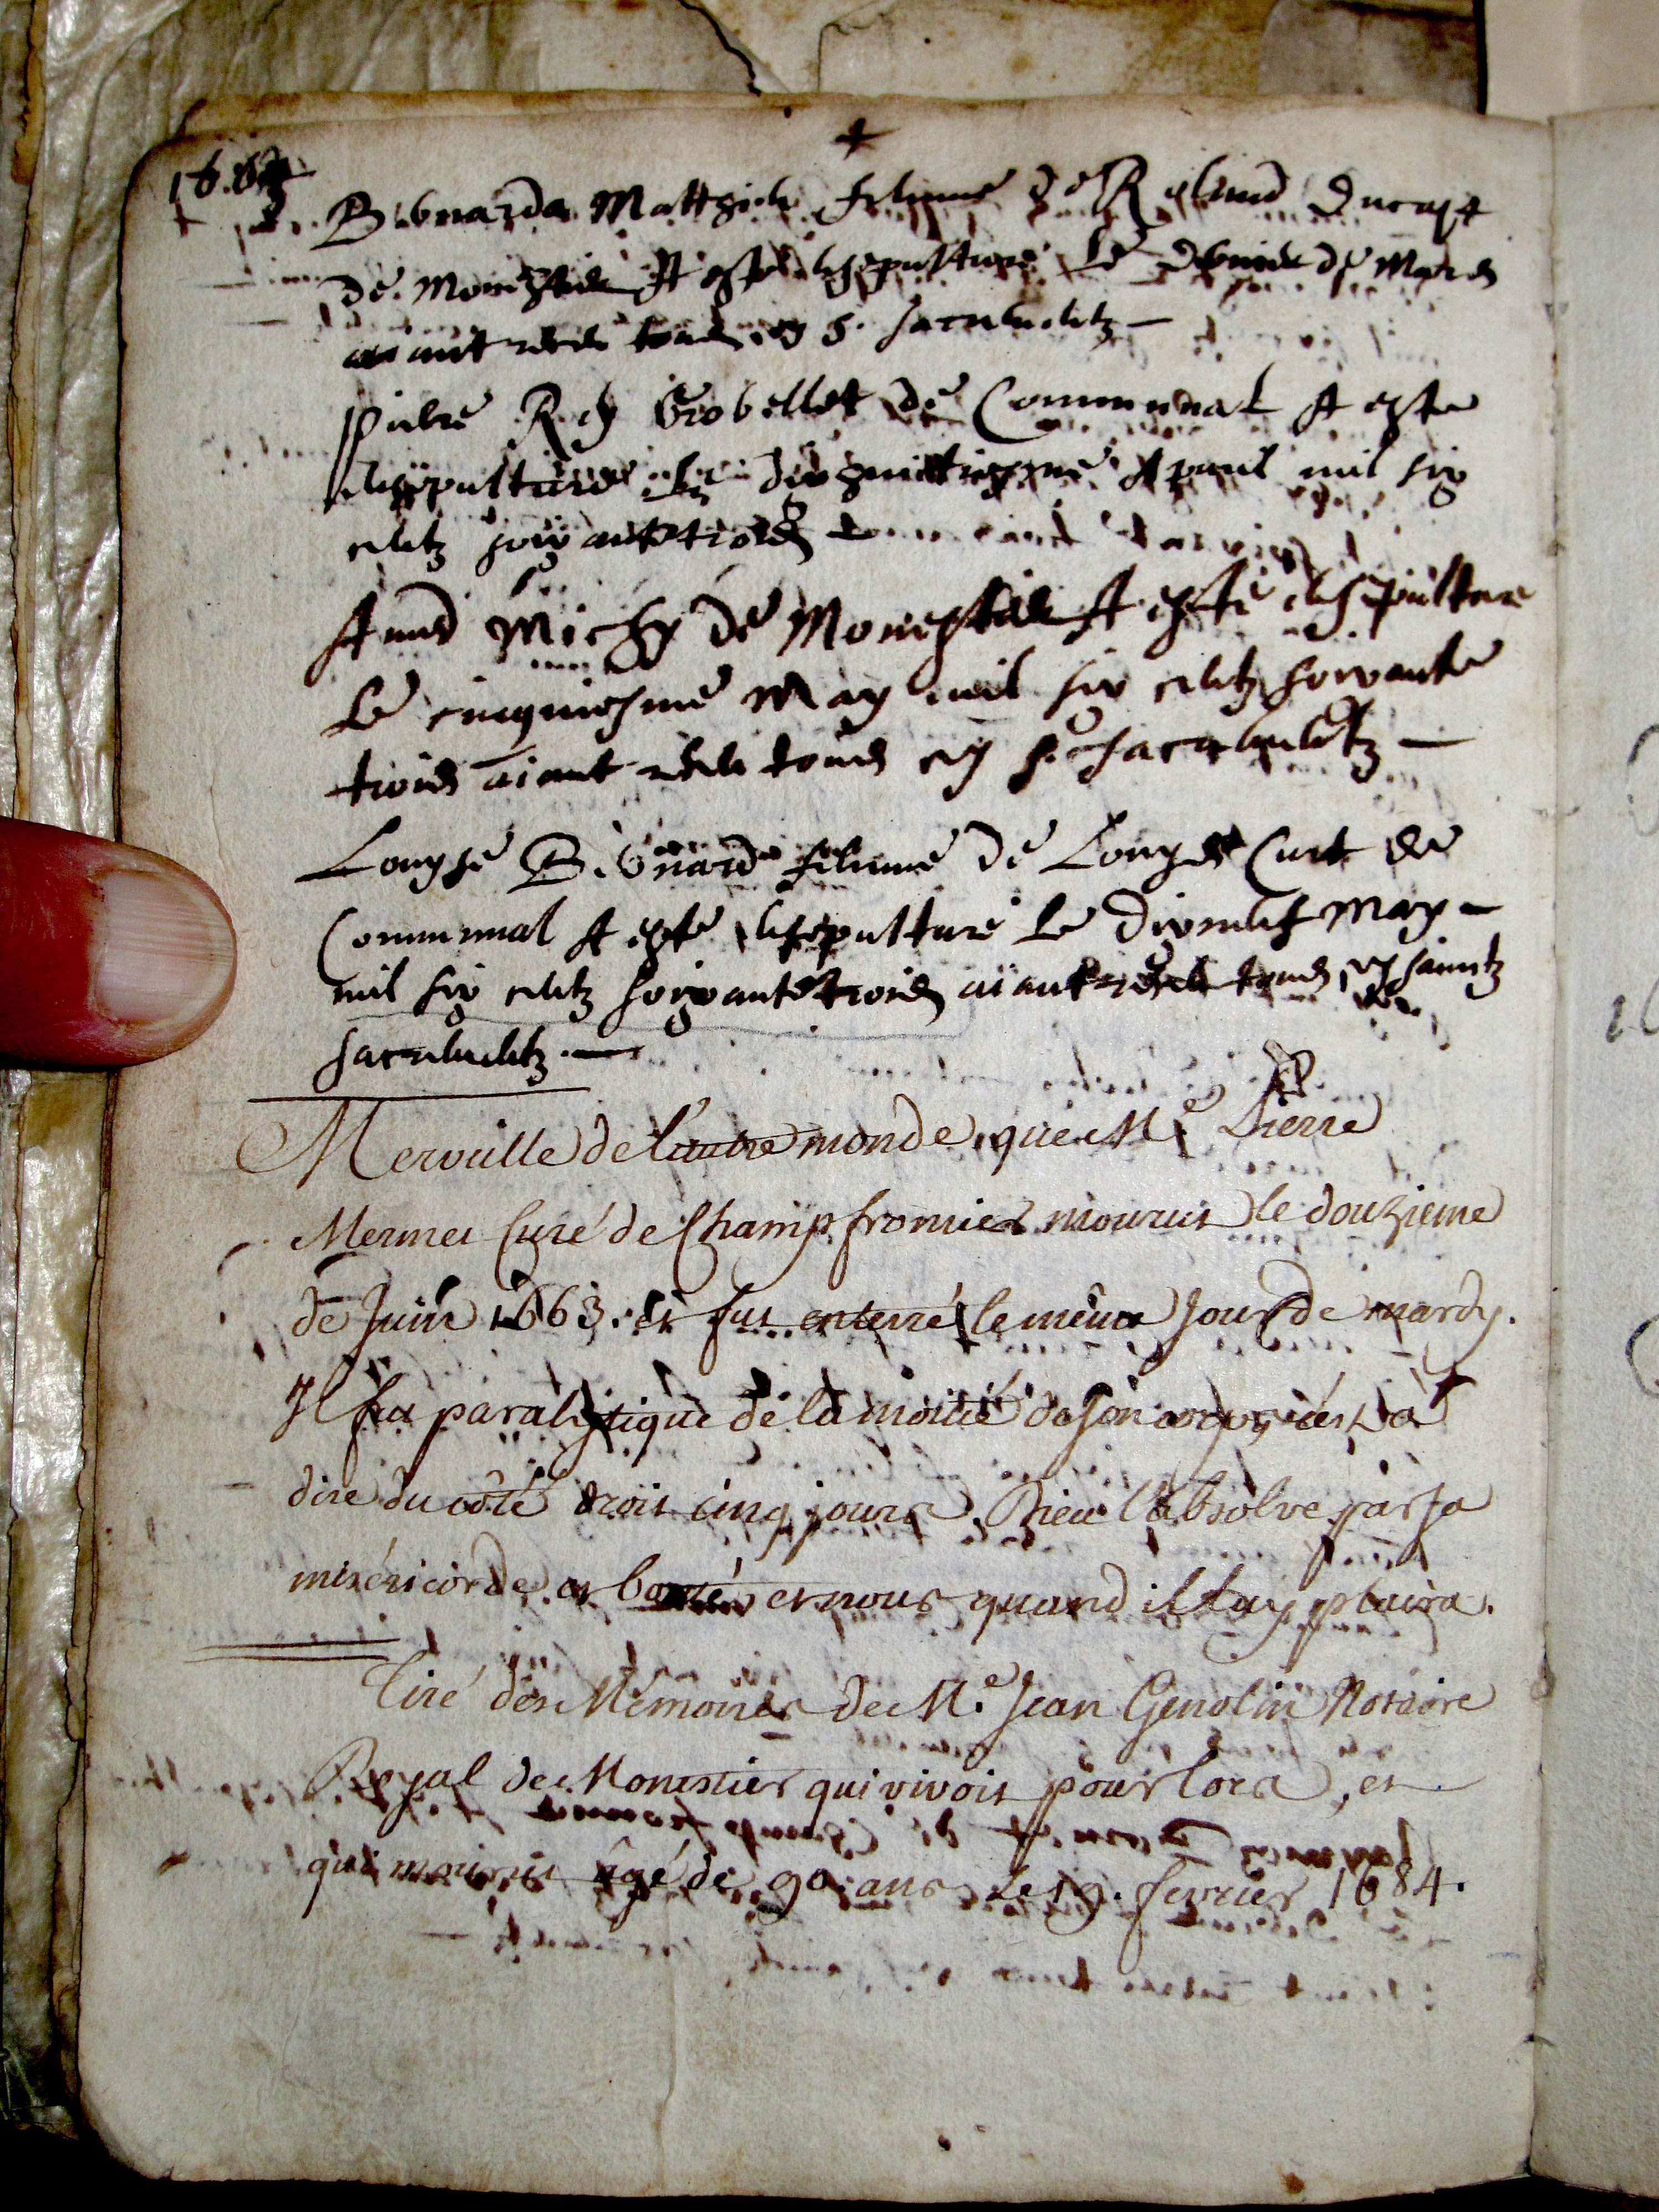 +
Bernarda Matthieu femme de Roland Ducrest
de Monestier A esté ensepulturé Le dernier de Mars
aiant receu tous les S. Sacrementz —
Pierre Roy Grobellet de Communal A esté
ensepulturé Le dixhuittiesme Apuril mil six
centz soixantetrois
Amed Michy de Monestier A esté ensepulture
Le cinquiesme May mil six centz soixante
trois aiant receu tous les s. sacrementz —
Louyse Bernard femme de Louys Curt de
Communal A esté ensepulturé Le dixneuf May —
mil six centz soixantetrois aiant receu tous les saintz
sacrementz. —
Merveille de l'autre monde, que Mre. Pierre
Mermet Curé de Champfromier mourut le douzieme
de Juin 1663. et fut enterré le même jour de mardy.
Il fut paralytique de la moitié de son corps c'est à
dire du côté droit cinq jours. Dieu l'absolve par sa
miséricorde et bonté et nous quand il luy plaira.
Tiré des Mémoires de Me. Jean Genolin Notaire
Royal de Monestier qui vivoit pour lors, et
qui mourut âgé de 90. ans le 19. fevrier 1684.